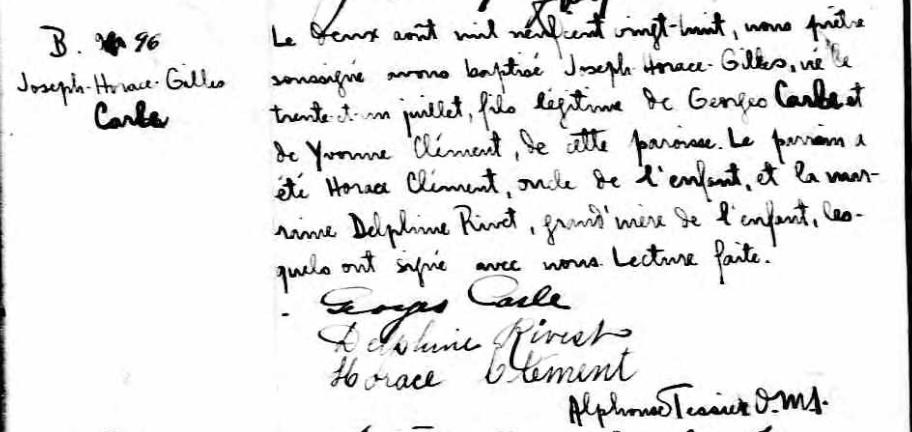 B. 96
Joseph-Horace-Gilles
Carle
Le deux août mil neuf cent vingt-huit, nous prêtre
soussigné avons baptisé Joseph-Horace-Gilles, né le
trente-et-un juillet, fils légitime de Georges Carle et
de Yvonne Clément, de cette paroisse. Le parrain a
été Horace Clément, oncle de l'enfant, et la mar-
raine Delphine Rivet, grand'mère de l'enfant, les-
quels ont signé avec nous. Lecture faite.
Georges Carle
Delphine Rivest
Horace Clément
Alphonse Tessier O.M.I.